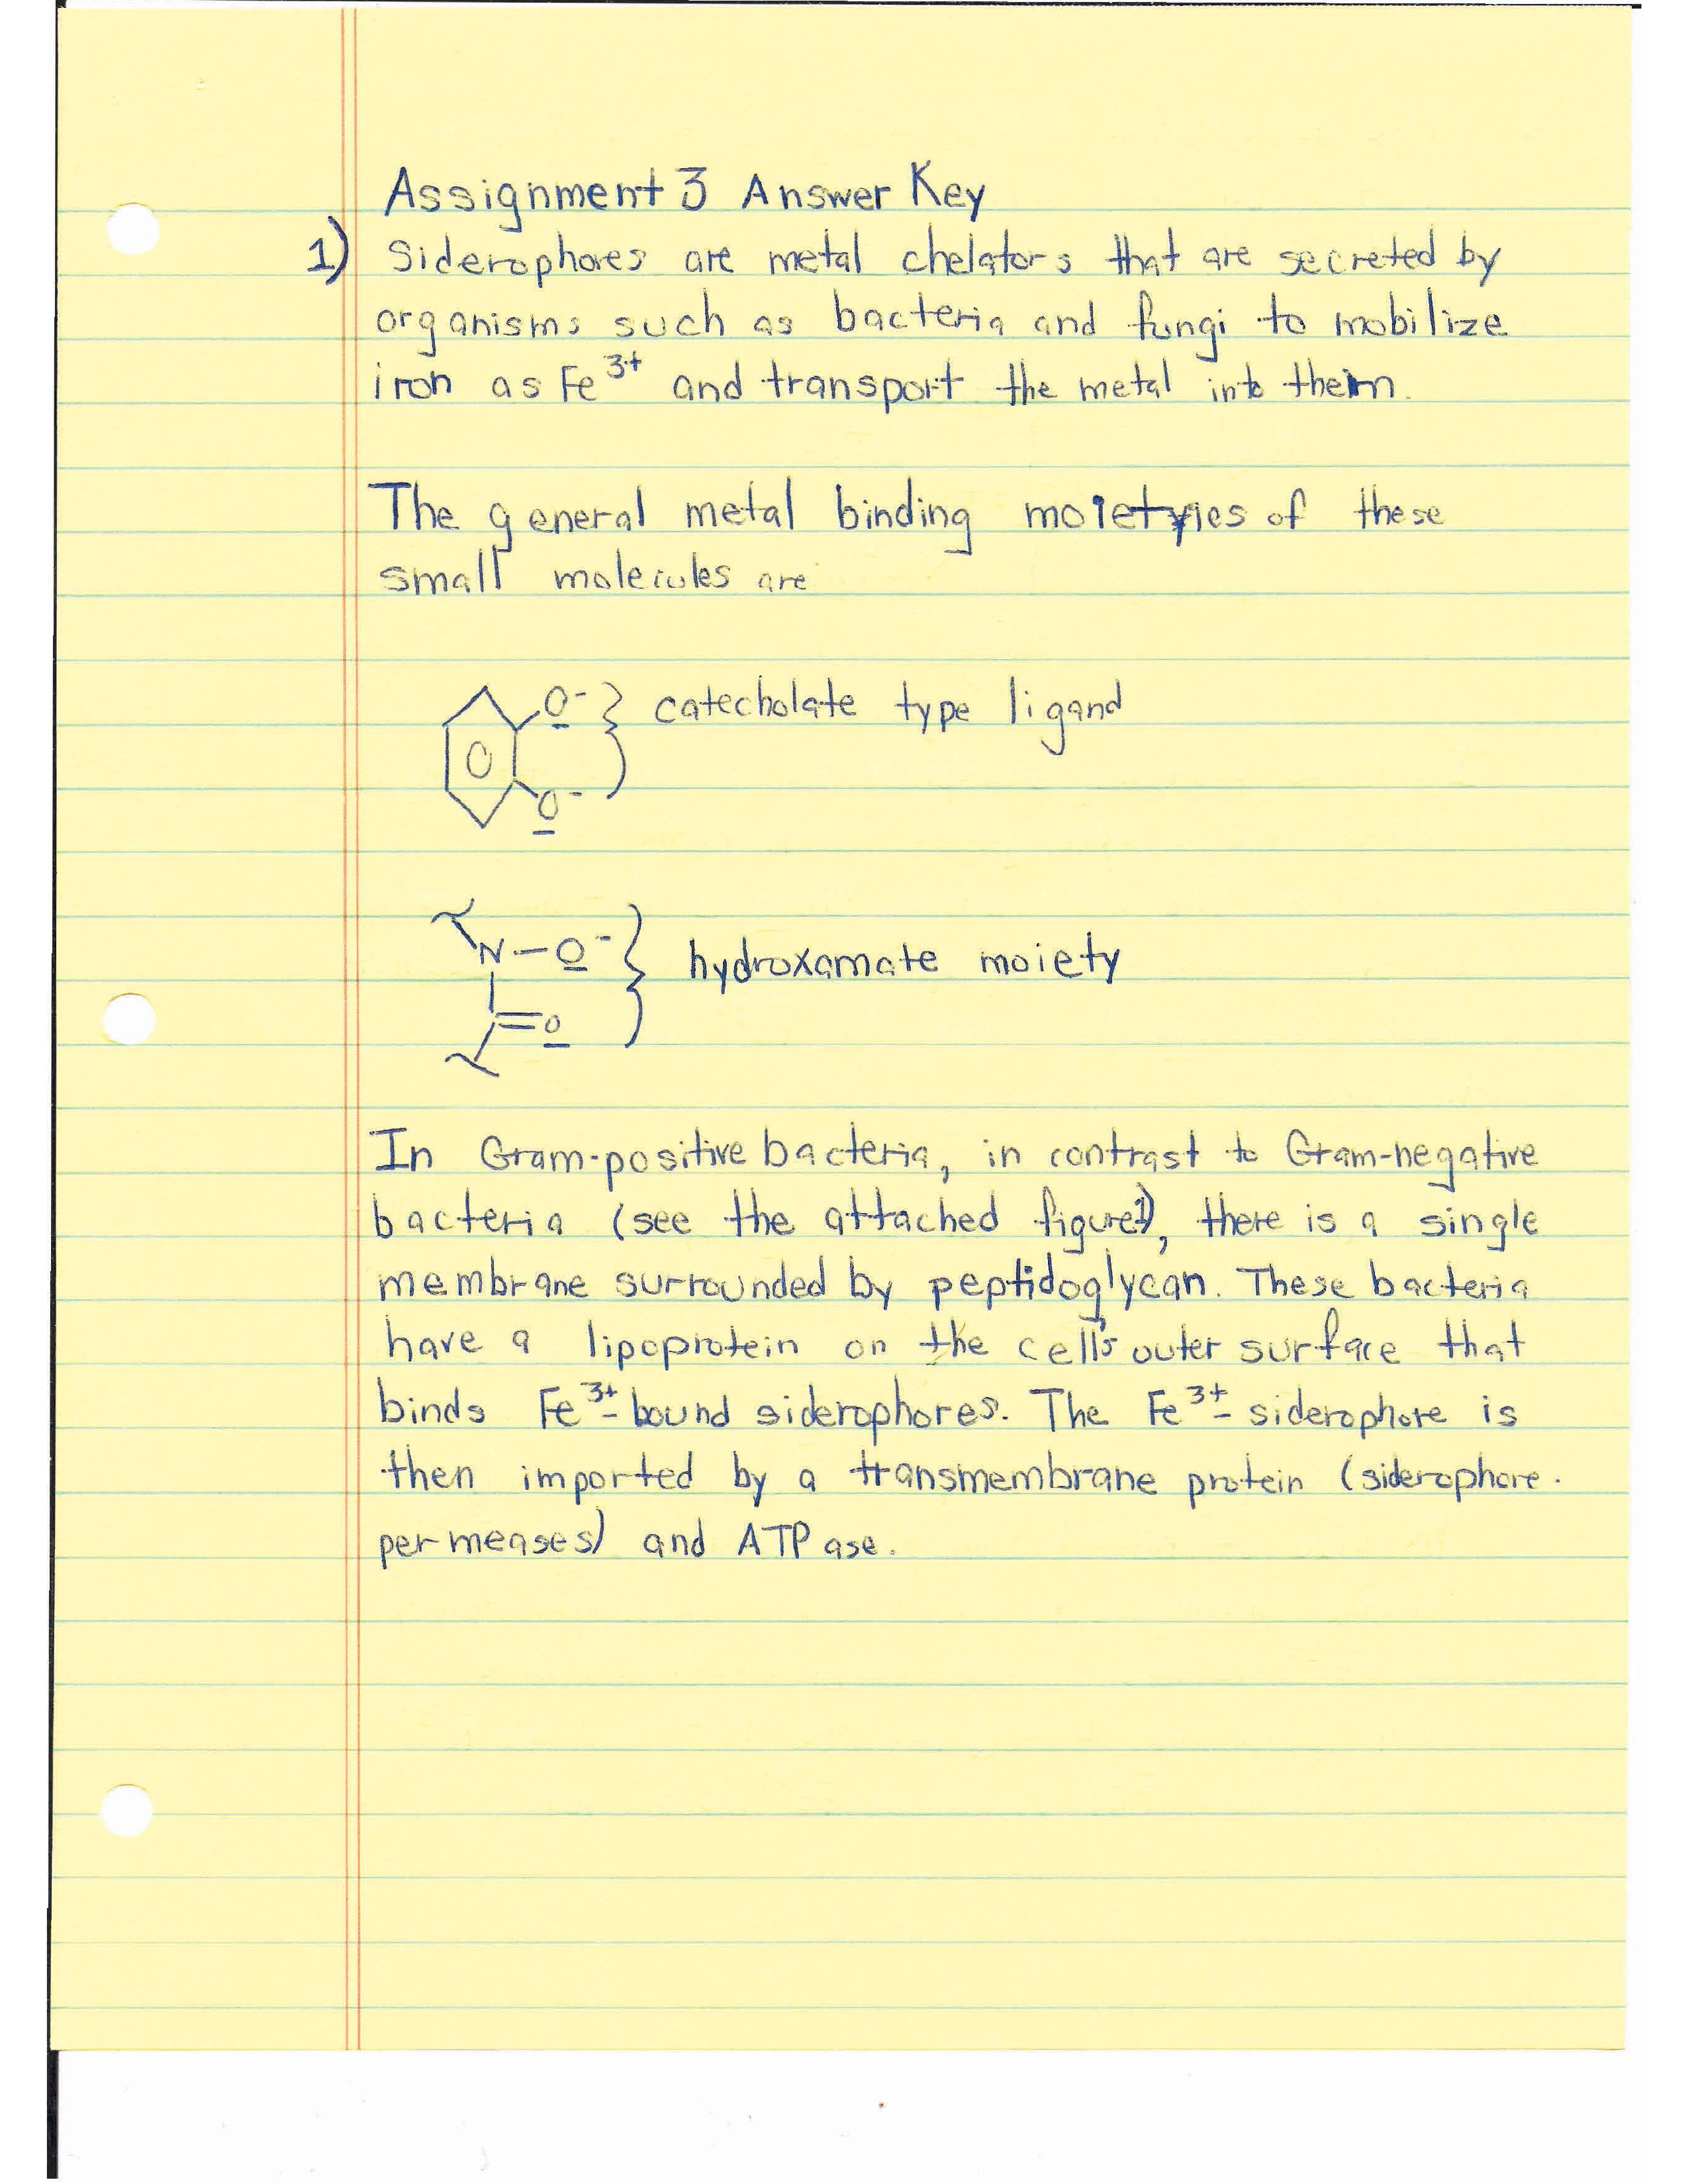 Assignment 3 Answer Key
1) Siderophores are metal chelators that are secreted by
organisms such as bacteria and fungi to mobilize
iron as Fe³⁺ and transport the metal into them.
The general metal binding moieties of these
small molecules are
O⁻ } catecholate type ligand
O⁻
N—O⁻ } hydroxamate moiety
=O
In Gram-positive bacteria, in contrast to Gram-negative
bacteria (see the attached figure 1), there is a single
membrane surrounded by peptidoglycan. These bacteria
have a lipoprotein on the cell's outer surface that
binds Fe³⁺-bound siderophores. The Fe³⁺-siderophore is
then imported by a transmembrane protein (siderophore-
permeases) and ATPase.